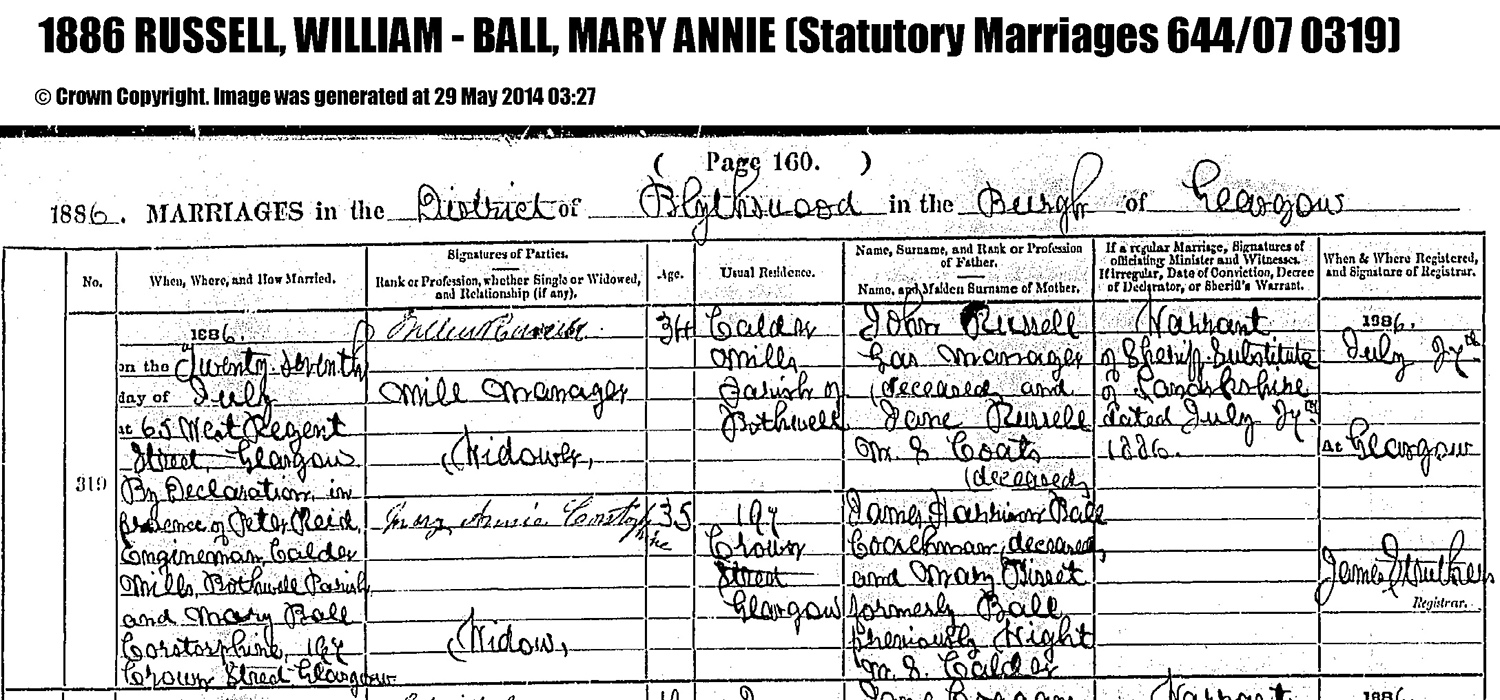 1886 RUSSELL, WILLIAM - BALL, MARY ANNIE (Statutory Marriages 644/07 0319)
© Crown Copyright. Image was generated at 29 May 2014 03:27
( Page 160. )
1886. MARRIAGES in the District of Blythswood in the Burgh of Glasgow
No.
When, Where, and How Married.
Signatures of Parties.
Rank or Profession, whether Single or Widowed,
and Relationship (if any).
Age.
Usual Residence.
Name, Surname, and Rank or Profession
of Father.
Name, and Maiden Surname of Mother.
If a regular Marriage, Signatures of
officiating Minister and Witnesses.
If irregular, Date of Conviction, Decree
of Declarator, or Sheriff's Warrant.
When & Where Registered,
and Signature of Registrar.
319
1886.
on the Twenty-seventh
day of July
at 65 West Regent
Street, Glasgow
By Declaration, in
presence of Peter Reid,
Engineman, Calder
Mills, Bothwell Parish
and Mary Ball
Corstorphine, 197
Crown Street Glasgow
William Russell
Mill Manager
(Widower)
Mary Annie Corstorphine
(Widow)
34
35
Calder
Mills
Parish of
Bothwell
197
Crown
Street
Glasgow
John Russell
Gas Manager
(deceased) and
Jane Russell
M. S. Coats
(deceased)
James Harrison Ball
Coachman, deceased,
and Mary
formerly Ball
previously Wight
M. S. Calder
Warrant
of Sheriff Substitute
of Lanarkshire
dated July 27th
1886.
1886.
July 27th
at Glasgow
James Struthers
Registrar.
Warrant
1886.